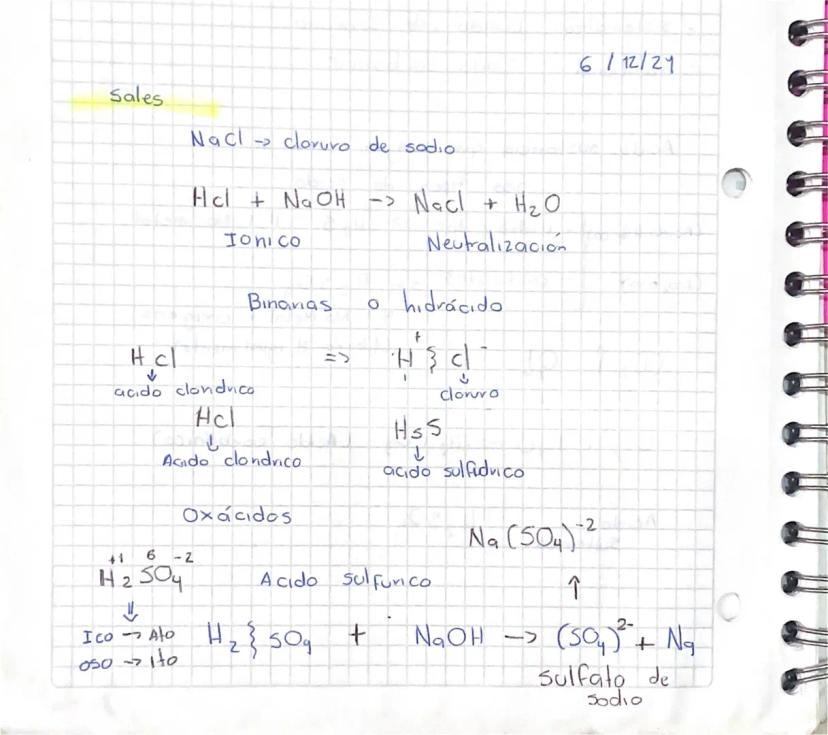 6 / 12/24
Sales
NaCl → cloruro de sodio
Hcl + NaOH → Nacl + H₂O
Ionico Neutralización
Binarias o hidrácido
H cl => H⁺ } cl⁻
acido cloridrico cloruro
Hcl HsS
Acido cloridrico acido sulfidrico
Oxácidos Na(SO₄)⁻²
+1 6 -2
H₂SO₄ Acido sulfurico ↑
Ico → Ato H₂} SO₄ + NaOH → (SO₄)²⁻ + Na
oso → Ito sulfato de
sodio